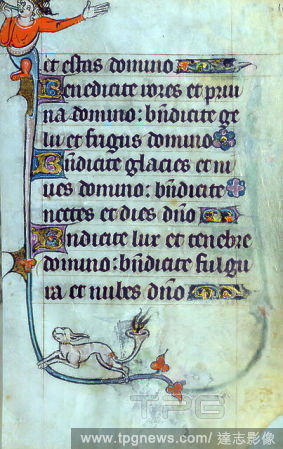 et estas domino
Benedicite rores et prui
na domino: bn̄dicite ge
lu et frigus domino
Bn̄dicite glacies et ni
ues domino: bn̄dicite
noctes et dies dn̄o
Bn̄dicite lux et tenebre
domino: bn̄dicite fulgu
ra et nubes dn̄o
TPG
www.tpgnews.com/ 達志影像